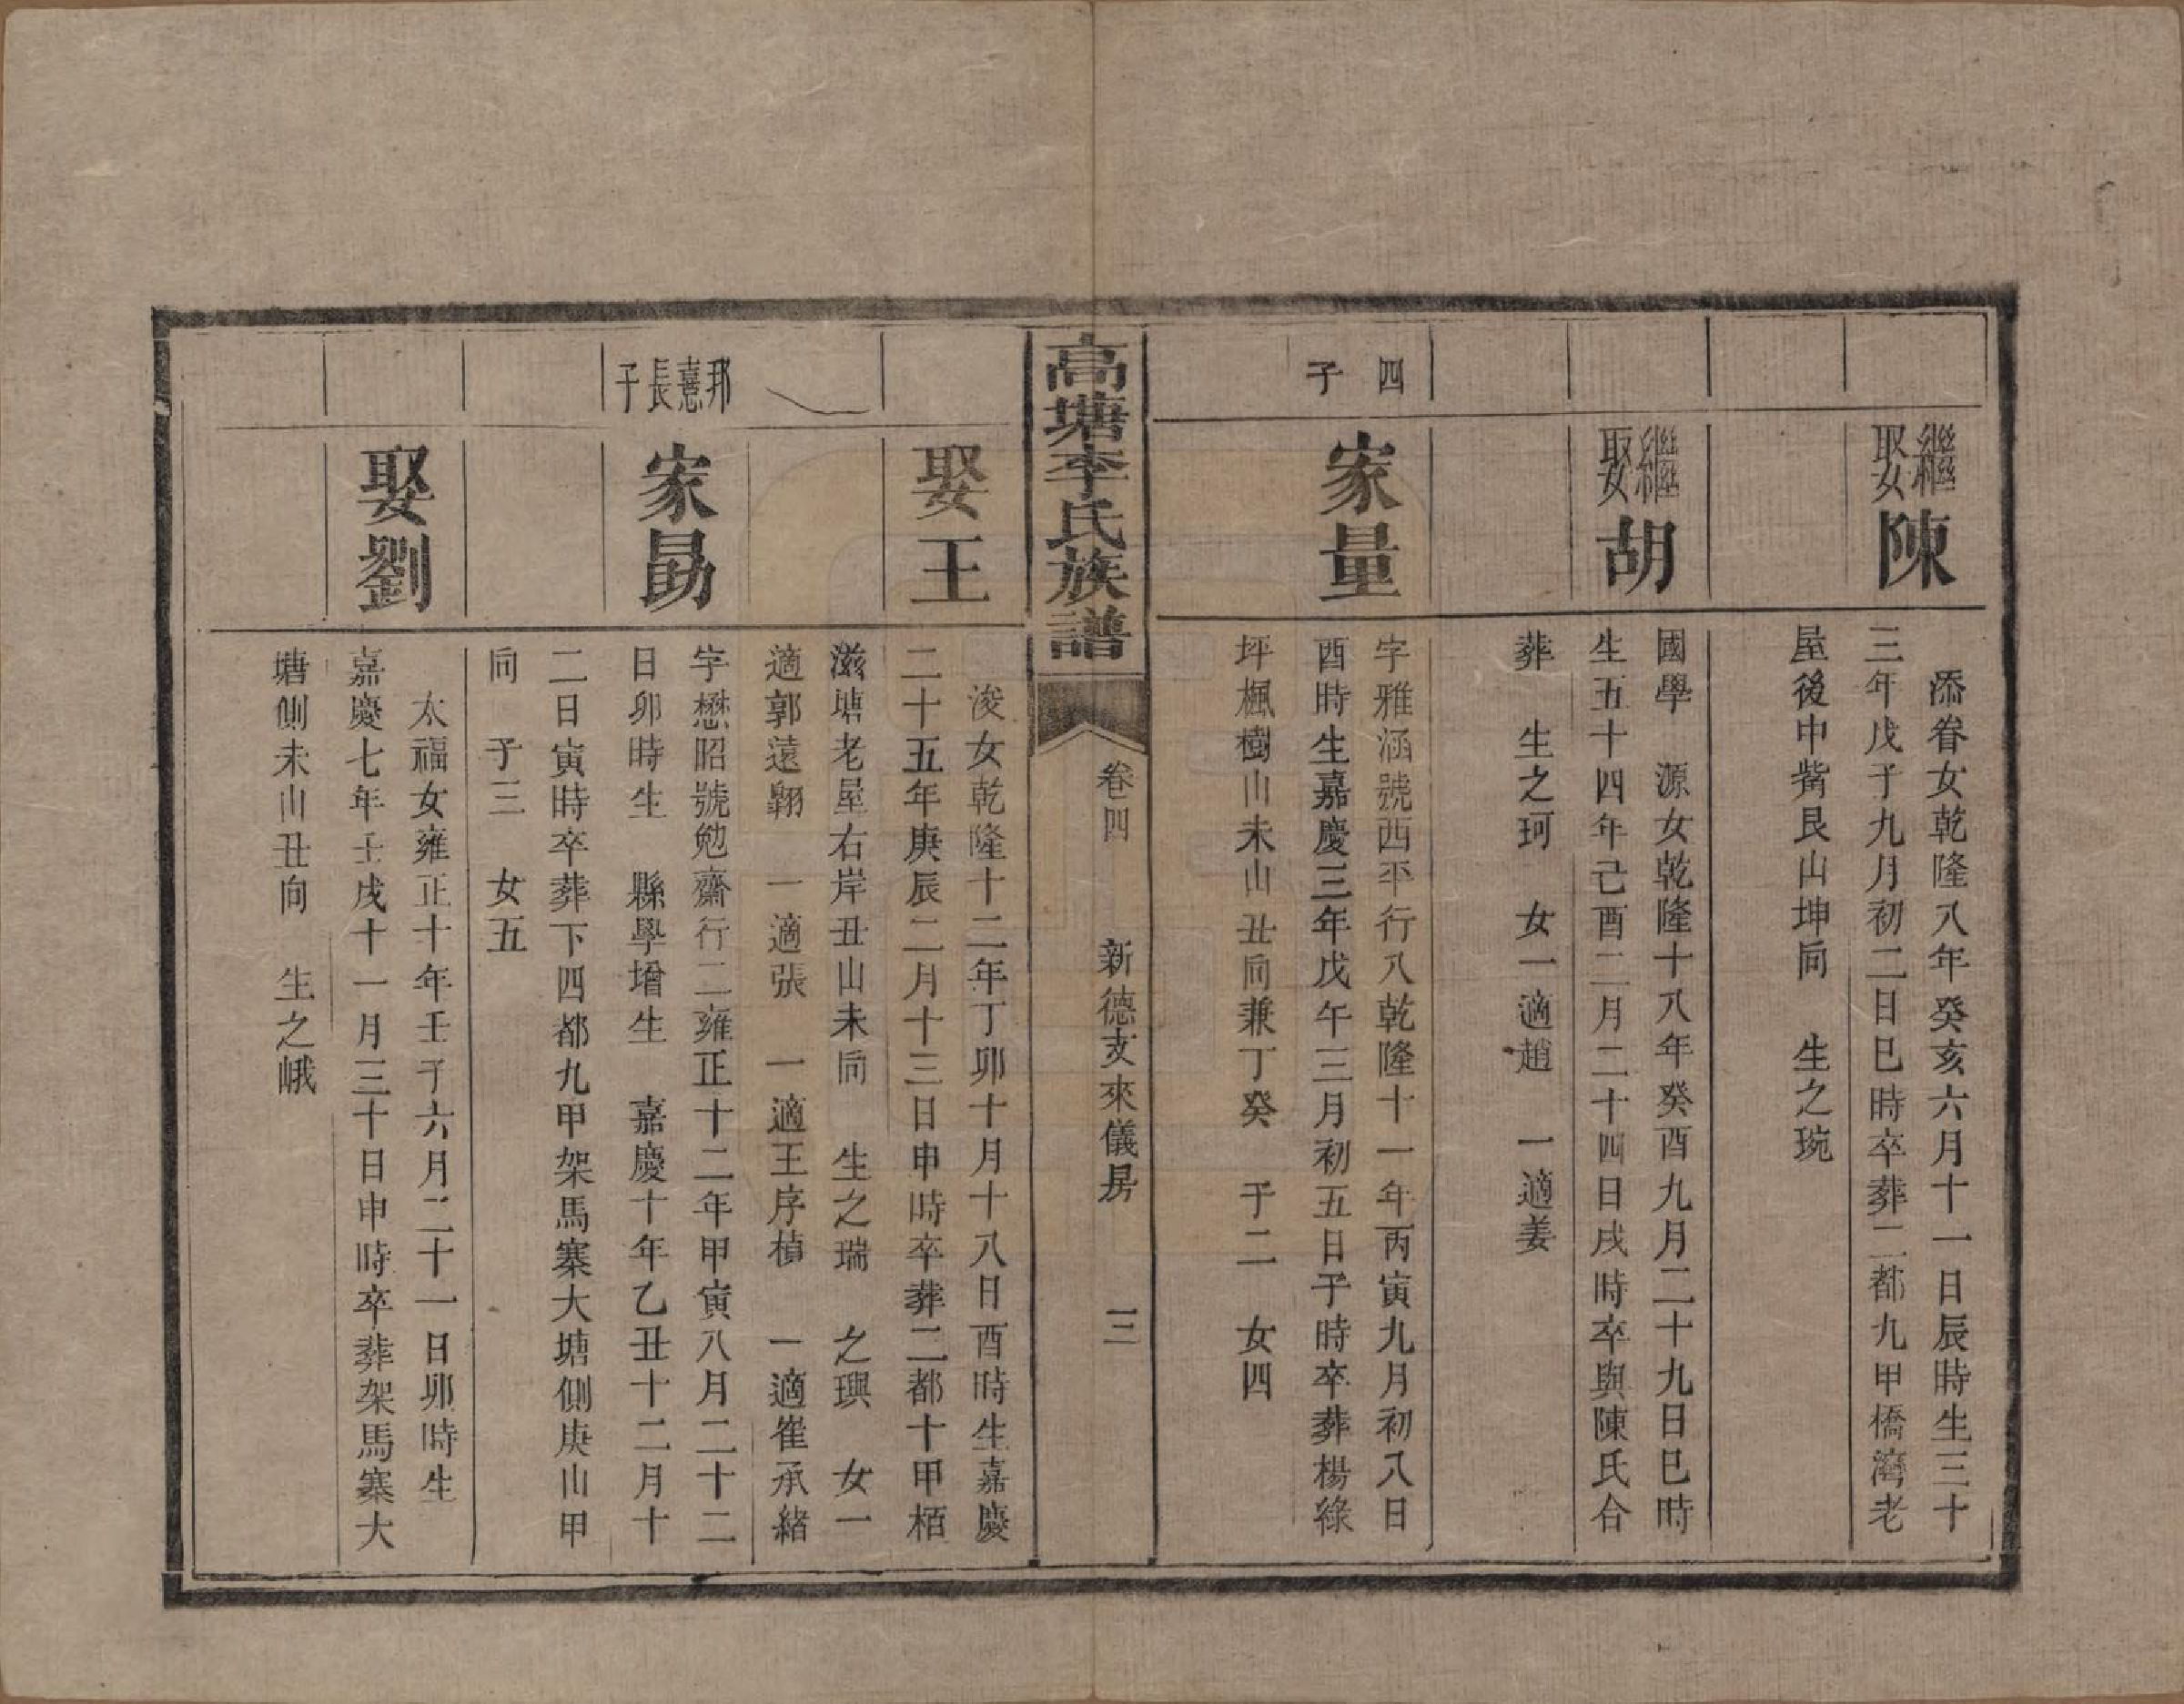 繼娶陳
添眷女乾隆八年癸亥六月十一日辰時生三十
三年戊子九月初二日巳時卒葬二都九甲橋灣老
屋後中嘴艮山坤向　生之琬
繼娶胡
國學　源女乾隆十八年癸酉九月二十九日巳時
生五十四年己酉二月二十四日戌時卒與陳氏合
葬　生之珂　女一適趙　一適姜
四子
家量
字雅涵號西平行八乾隆十一年丙寅九月初八日
酉時生嘉慶三年戊午三月初五日子時卒葬楊祿
坪楓樹山未山丑向兼丁癸　子二　女四
高塘李氏族譜
卷四
新德支來儀房
三
娶王
浚女乾隆十二年丁卯十月十八日酉時生嘉慶
二十五年庚辰二月十三日申時卒葬二都十甲栢
滋塘老屋右岸丑山未向　生之瑞　之璵　女一
適郭遠翱　一適張　一適王序楨　一適崔承緒
邦憙長子
家勗
字懋昭號勉齋行二雍正十二年甲寅八月二十二
日卯時生　縣學增生　嘉慶十年乙丑十二月十
二日寅時卒葬下四都九甲架馬寨大塘側庚山甲
向　子三　女五
娶劉
太福女雍正十年壬子六月二十一日卯時生
嘉慶七年壬戌十一月三十日申時卒葬架馬寨大
塘側未山丑向　生之峨